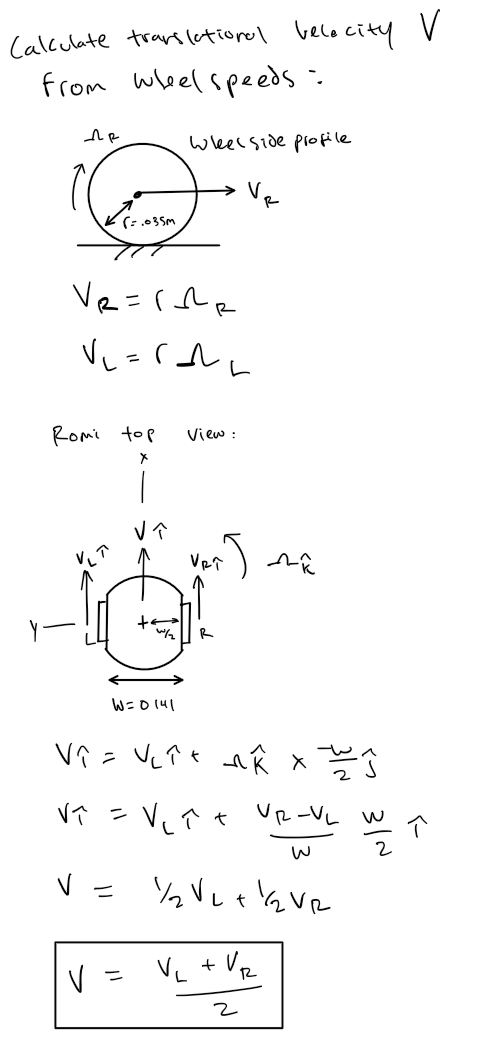 Calculate translational velocity V
from wheel speeds:
Ω_R
Wheel side profile
V_R
r=.035m
V_R = r Ω_R
V_L = r Ω_L
Romi top view:
x
V î
V_L î
V_R î
Ω k̂
y
L
+
w/2
R
W=0.141
V î = V_L î + Ω k̂ × -w/2 ĵ
V î = V_L î + (V_R - V_L)/w w/2 î
V = 1/2 V_L + 1/2 V_R
V = (V_L + V_R)/2